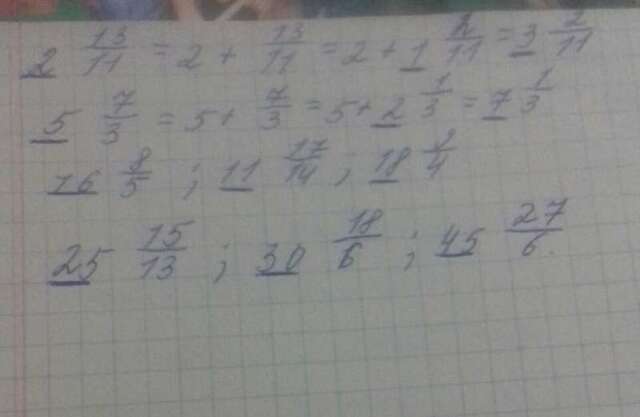 2 13/11 = 2 + 13/11 = 2 + 1 2/11 = 3 2/11
5 7/3 = 5 + 7/3 = 5 + 2 1/3 = 7 1/3
16 8/5 ; 11 17/14 ; 18 9/4
25 15/13 ; 30 18/6 ; 45 27/6.